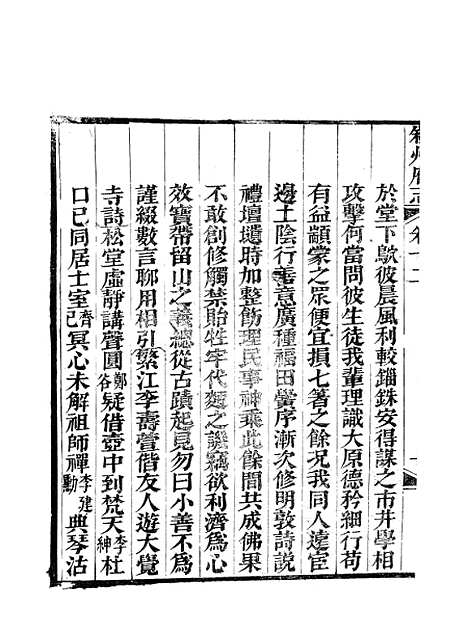 敘州府志 卷十二
於堂下歇彼晨風利較錙銖安得謀之市井學相
攻擊何當問彼生徒我輩理識大原德矜細行苟
有益顓蒙之眾便宜損七著之餘况我同人遠宦
邊土陰行善意廣種福田黌序漸次修明敦詩說
禮壇壝時加整飭理民事神乘此餘閒共成佛果
不敢創修觸禁貽牲牢代麵之譏竊欲利濟為心
效寶帶留山之義總從古蹟起見勿曰小善不為
謹綴數言聊用相引繁江李壽萱偕友人遊大覺
寺詩松堂虛靜講聲圓鄭谷疑借壺中到梵天李紳杜
口已同居士室齊己冥心未解祖師禪李建勳典琴沽